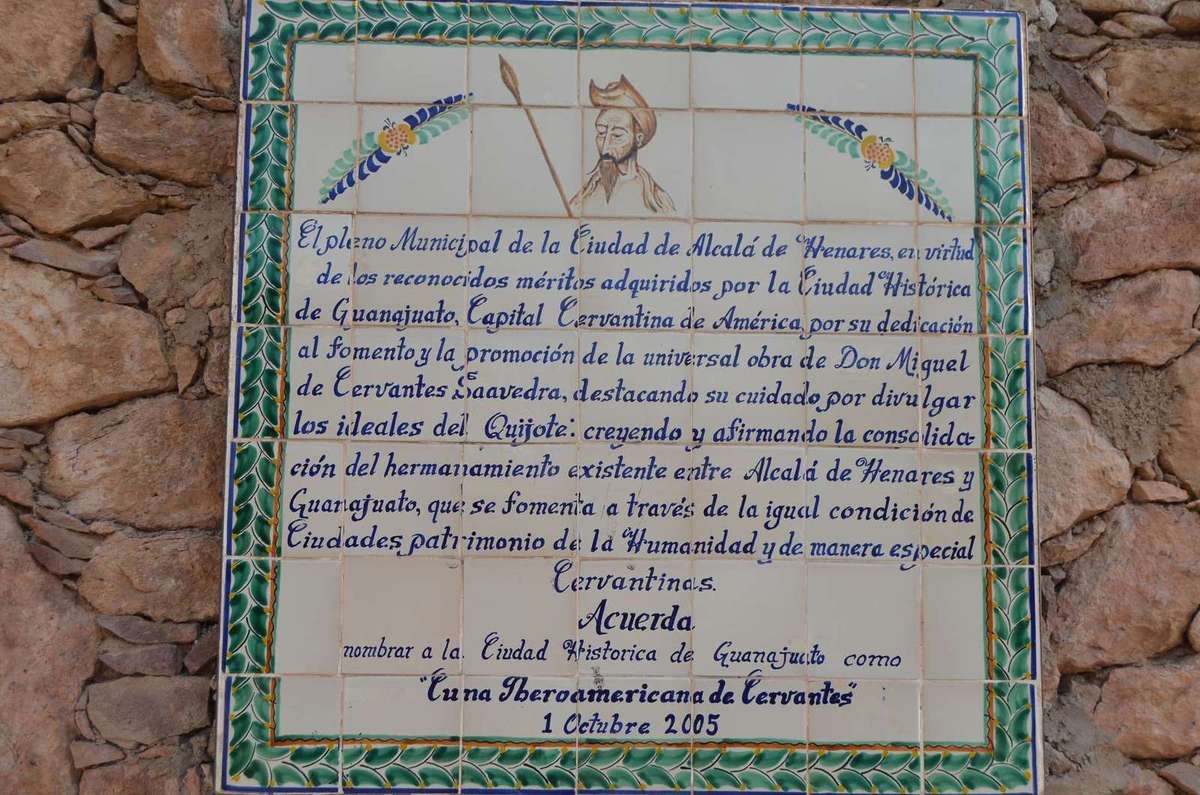 El pleno Municipal de la Ciudad de Alcalá de Henares, en virtud
de los reconocidos méritos adquiridos por la Ciudad Histórica
de Guanajuato, Capital Cervantina de América, por su dedicación
al fomento y la promoción de la universal obra de Don Miguel
de Cervantes Saavedra, destacando su cuidado por divulgar
los ideales del Quijote: creyendo y afirmando la consolida-
ción del hermanamiento existente entre Alcalá de Henares y
Guanajuato, que se fomenta a través de la igual condición de
Ciudades patrimonio de la Humanidad y de manera especial
Cervantinas.
Acuerda
nombrar a la Ciudad Historica de Guanajuato como
"Cuna Iberoamericana de Cervantes"
1 Octubre 2005